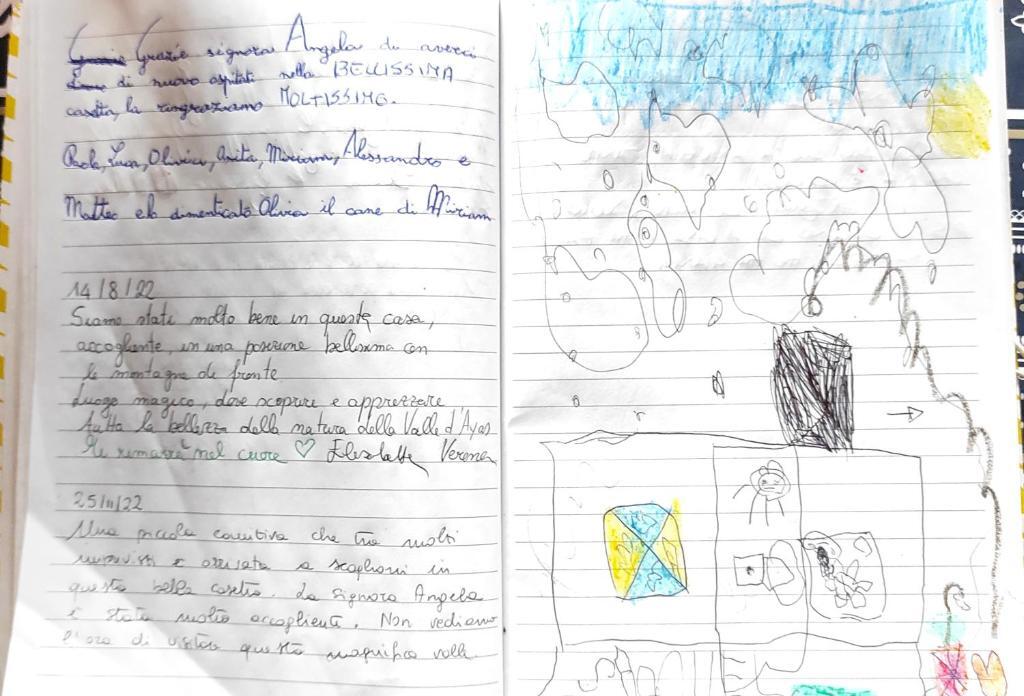 Grazie signora Angela di averci
di nuovo ospitati nella BELLISSIMA
casetta, la ringraziamo MOLTISSIMO.
Paola, Luca, Olivia, Anita, Miriam, Alessandro e
Matteo e ho dimenticato Olivia il cane di Miriam
14/8/22
Siamo stati molto bene in queste casa,
accogliente, in una posizione bellissima con
le montagne di fronte.
Luogo magico, dove scoprire e apprezzare
tutta la bellezza della natura della Valle d'Ayas
nel cuore ♡ Elisabetta Verona
25/11/22
Una piccola comitiva che tra molti
imprevisti è arrivata a scaglioni in
questa bella casetta. La signora Angela
è stata molto accogliente. Non vediamo
l'ora di visitare questa magnifica valle.